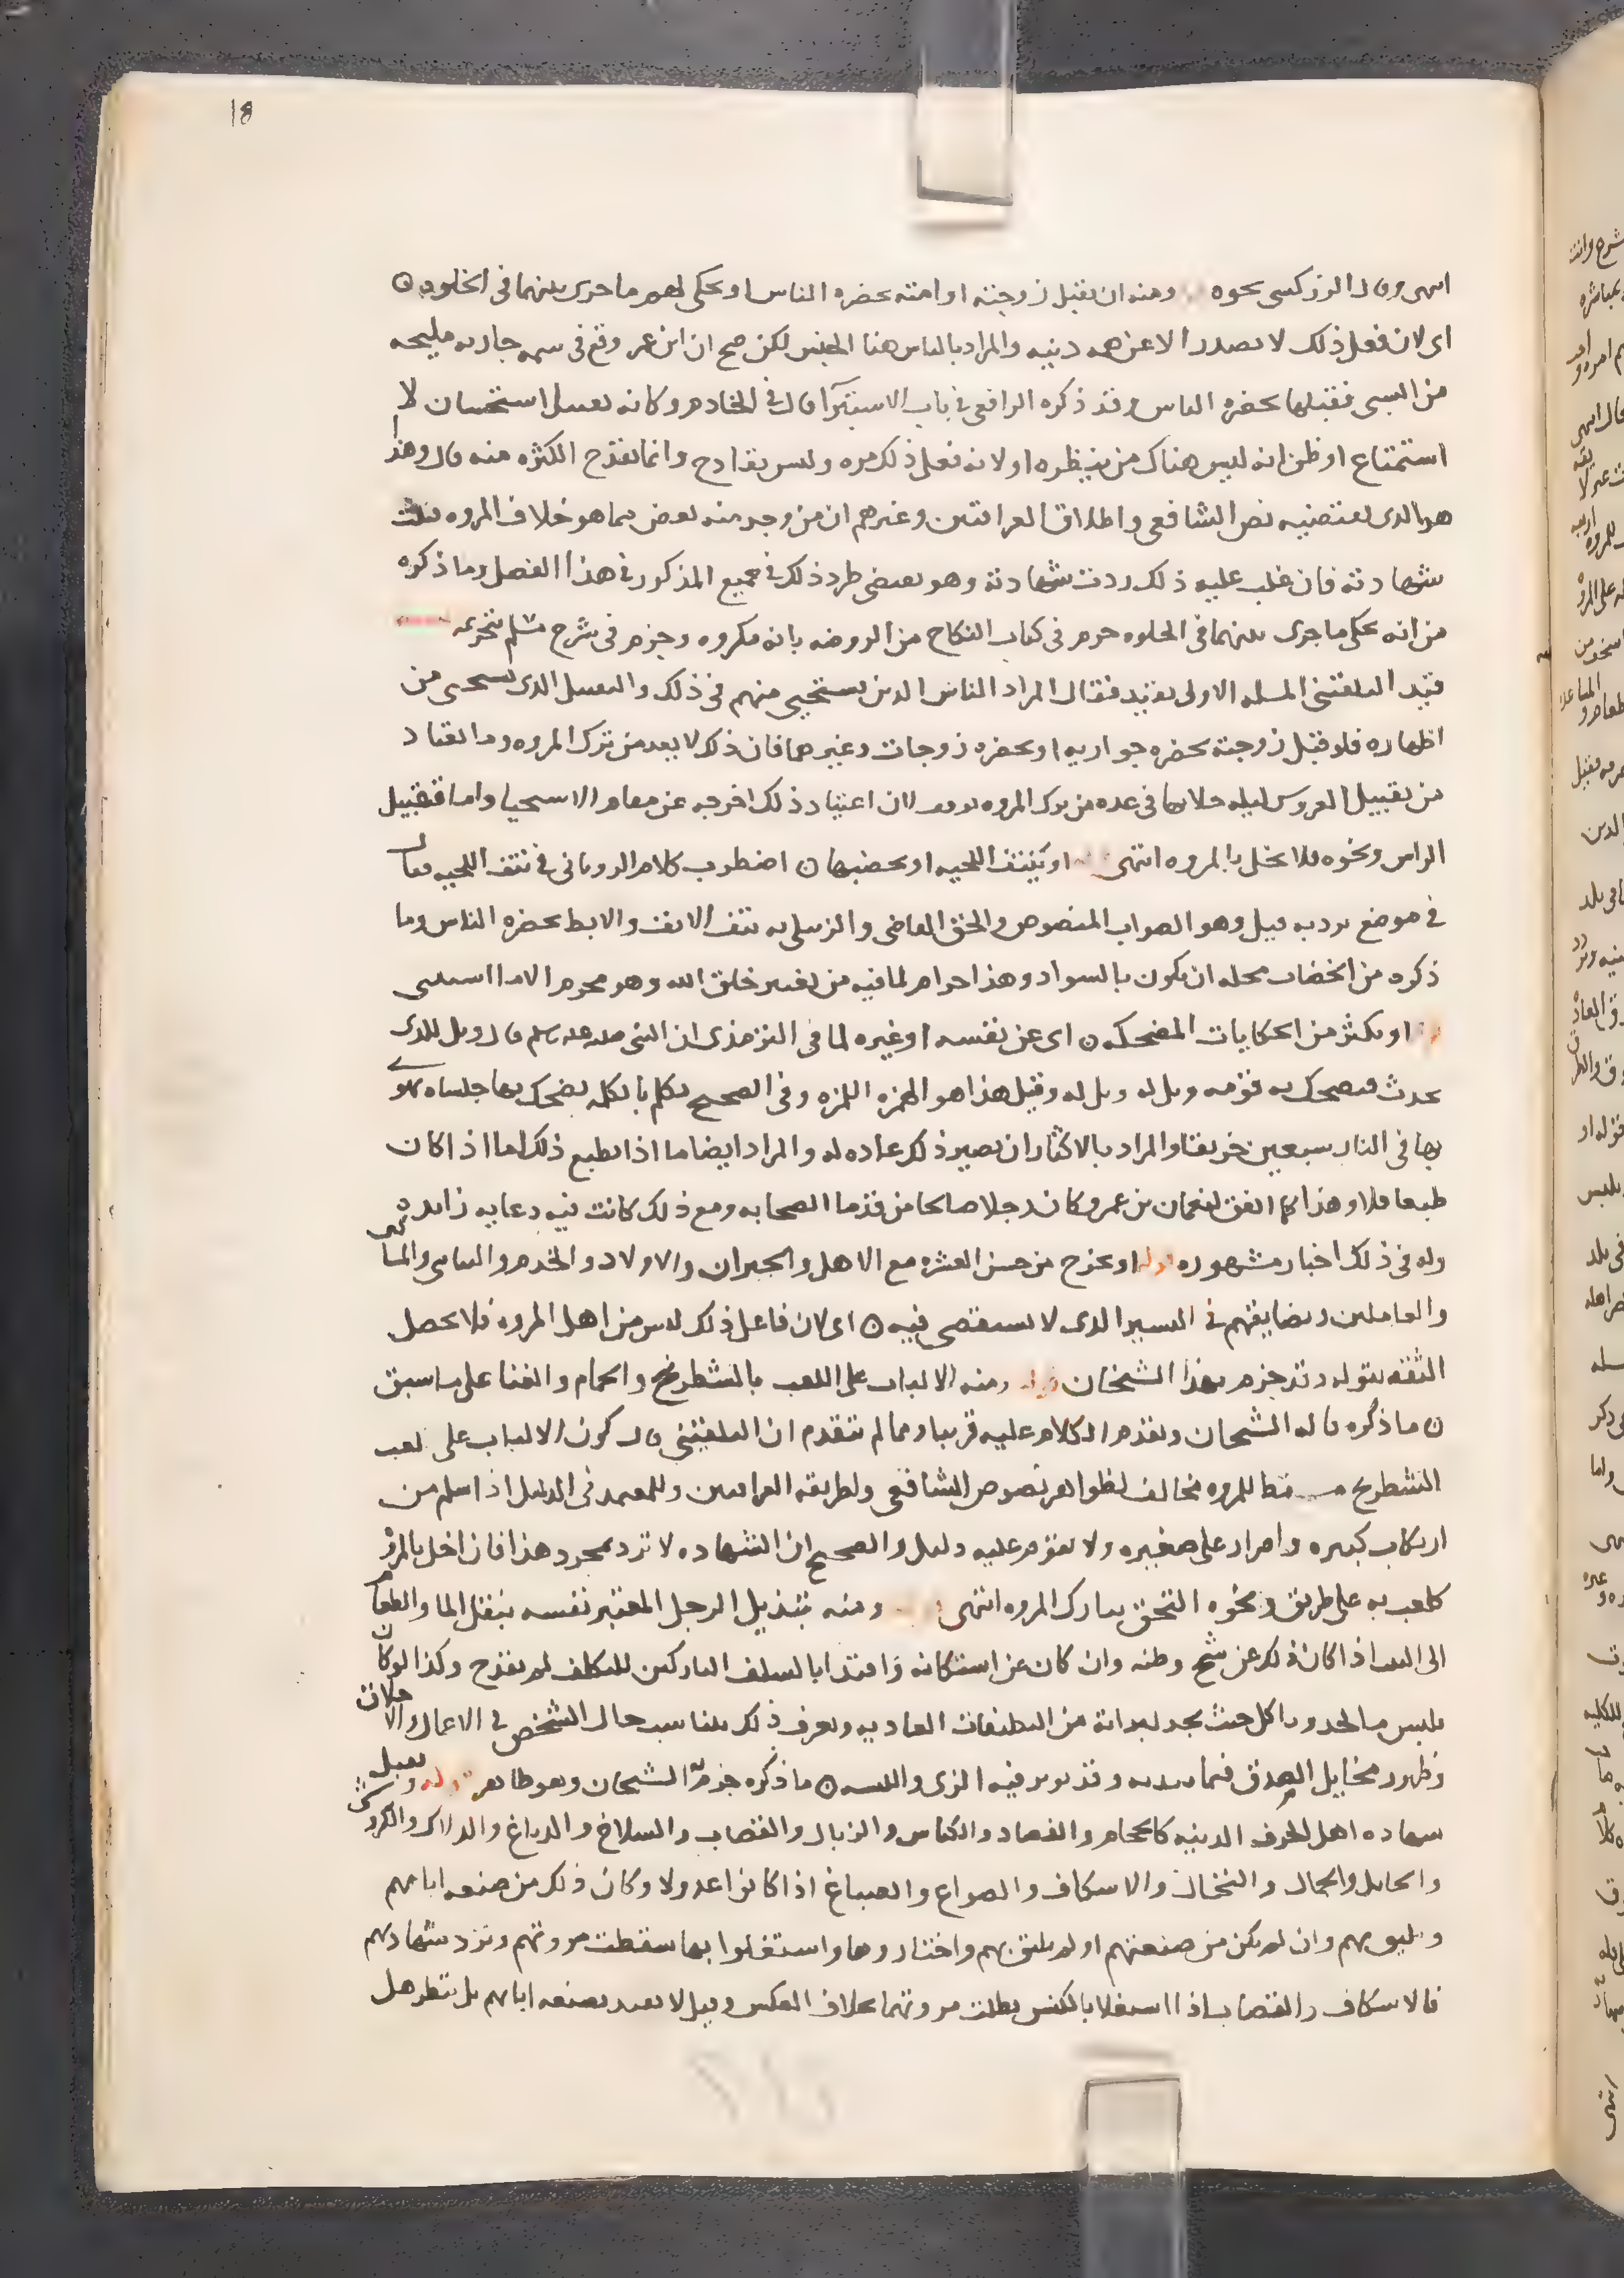 18
انتهى وقال الزركشي نحوه ومنه ان يقبل زوجته او امته بحضره الناس او يحكي لهم ما جرى بينهما في الخلوه
اى لان فعل ذلك لا يصدر الا عن همه دنيه والمراد بالناس هنا الجنس لكن صح ان ابن عمر وقع في سهمه جاريه مليحه
من السبي فقبلها بحضره الناس وقد ذكره الرافعي في باب الاستبرآ قال في الخادم وكانه تقبيل استحسان لا
استمتاع او ظن انه ليس هناك من ينظره او لانه فعل ذلك مره وليس بقادح وانما يقدح الكثره منه قال وهذا
هو الذى يقتضيه نص الشافعي واطلاق العراقيين وغيرهم ان من وجد منه بعض مما هو خلاف المروه قبلت
شهادته فان غلب عليه ذلك ردت شهادته وهو يقتضى طرد ذلك في جميع المذكور في هذا الفصل وما ذكره
من انه يحكى ما جرى بينهما في الخلوه جزم في كتاب النكاح من الروضه بانه مكروه وجزم في شرح مسلم بتحريمه
قيد البلقيني المسله الاولى بقيد فقال المراد الناس الذين يستحيي منهم في ذلك والتقبيل الذى يستحيى من
اظهاره فلو قبل زوجته بحضره جواريه او بحضره زوجات وغيرهما فان ذلك لا يعد من ترك المروه وما اعتاد
من تقبيل العروس ليله جلائها في عده من ترك المروه توقف لان اعتياد ذلك اخرجه عن مقام الاستحيا واما تقبيل
الراس ونحوه فلا يخل بالمروه انتهى او ينتف اللحيه او يخضبها اضطرب كلام الرويانى في نتف اللحيه فقال
في موضع ترد به قيل وهو الصواب المنصوص والحق القاضى والزبيلى به نتف الانف والابط بحضره الناس وما
ذكره من الخضاب محله ان يكون بالسواد وهذا حرام لما فيه من تغيير خلق الله وهو محرم الا ما استثنى
او يكثر من الحكايات المضحكه اى عن نفسه او غيره لما في الترمذى ان النبي صلى الله عليه وسلم قال ويل للذى
يحدث فيضحك به قومه ويل له ويل له وقيل هذا هو الهمزه اللمزه وفي الصحيح تكلم بالكلمه يضحك بها جلساه يهوى
بها في النار سبعين خريفا والمراد بالاكثار ان يصير ذلك عاده له والمراد ايضا ما اذا تطبع ذلك اما اذا كان
طبعا فلا وهذا كما اتفق لنعمان بن عمرو كان رجلا صالحا من قدما الصحابه ومع ذلك كانت فيه دعابه زايده
وله في ذلك اخبار مشهوره قوله او يخرج من حسن العشره مع الاهل والجيران والاولاد والخدم
والعاملين ويضايقهم في اليسير الذى لا يستقصى فيه اى لان فاعل ذلك ليس من اهل المروه فلا تحصل
الثقه بقوله وقد جزم بهذا الشيخان قوله ومنه الاكباب على اللعب بالشطرنج والحمام والغنا على ما سبق
ما ذكره قاله الشيخان وتقدم الكلام عليه قريبا ومما لم يتقدم ان البلقيني قال كون الاكباب على لعب
الشطرنج مسقطا للمروه مخالف لظواهر نصوص الشافعي ولطريقه العراقيين وللمعتمد في الدليل اذا سلم من
ارتكاب كبيره واصرار على صغيره ولا يقوم عليه دليل والصحيح ان الشهاده لا ترد بمجرد هذا فان اخل بالمروه
كلعب به على طريق ونحوه التحق بتارك المروه انتهى ومنه تبذيل الرجل المعتبر نفسه بنقل الما والطعام
الى البيت اذا كان ذلك عن شح وظنه وان كان عن استكانه واقتدا بالسلف التاركين للتكلف لم يقدح وكذا لو كان
يلبس ما يجد وياكل حيث يجد لبراته من التكلفات العاديه ويعرف ذلك بتناسب حال الشخص في الاعمال والاخلاق
وظهور مخايل الصدق فيما يبديه وقد يوثر فيه الزى واللبسه ما ذكره جزم به الشيخان وهو ظاهر قوله وتقبل
شهاده اهل الحرف الدنيه كالحجام والفصاد والكناس والزبال والقصاب والسلاخ والدباغ والدلاك والكروشي
والحايك والجمال والنخال والاسكاف والصواغ والصباغ اذا كانوا عدولا وكان ذلك من صنعه ابايهم
ويليق بهم وان لم يكن من صنعتهم او لم يلق بهم واختاروها واشتغلوا بها سقطت مروتهم وترد شهادتهم
فالاسكاف والقصاب اذا اشتغلا بالكنس بطلت مروتهما بخلاف العكس وقيل لا يتقيد بصنعه ابايهم بل ينظر هل